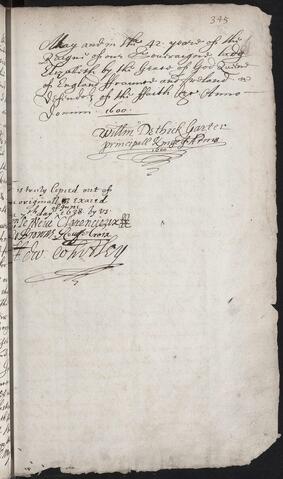 345
May and in the 42. yeare of the
Reigne of our Soveraigne Lady
Elizabeth by the Grace of God Queene
of England ffraunce and Ireland
Defender of the ffaith &c Anno
domini. 1600.
Willm Dethick Garter
principall King of Armes
1600
is truly Copied out of
originall & exaced
of June
day 1638. by us
Clarenceux
Rouge Croix